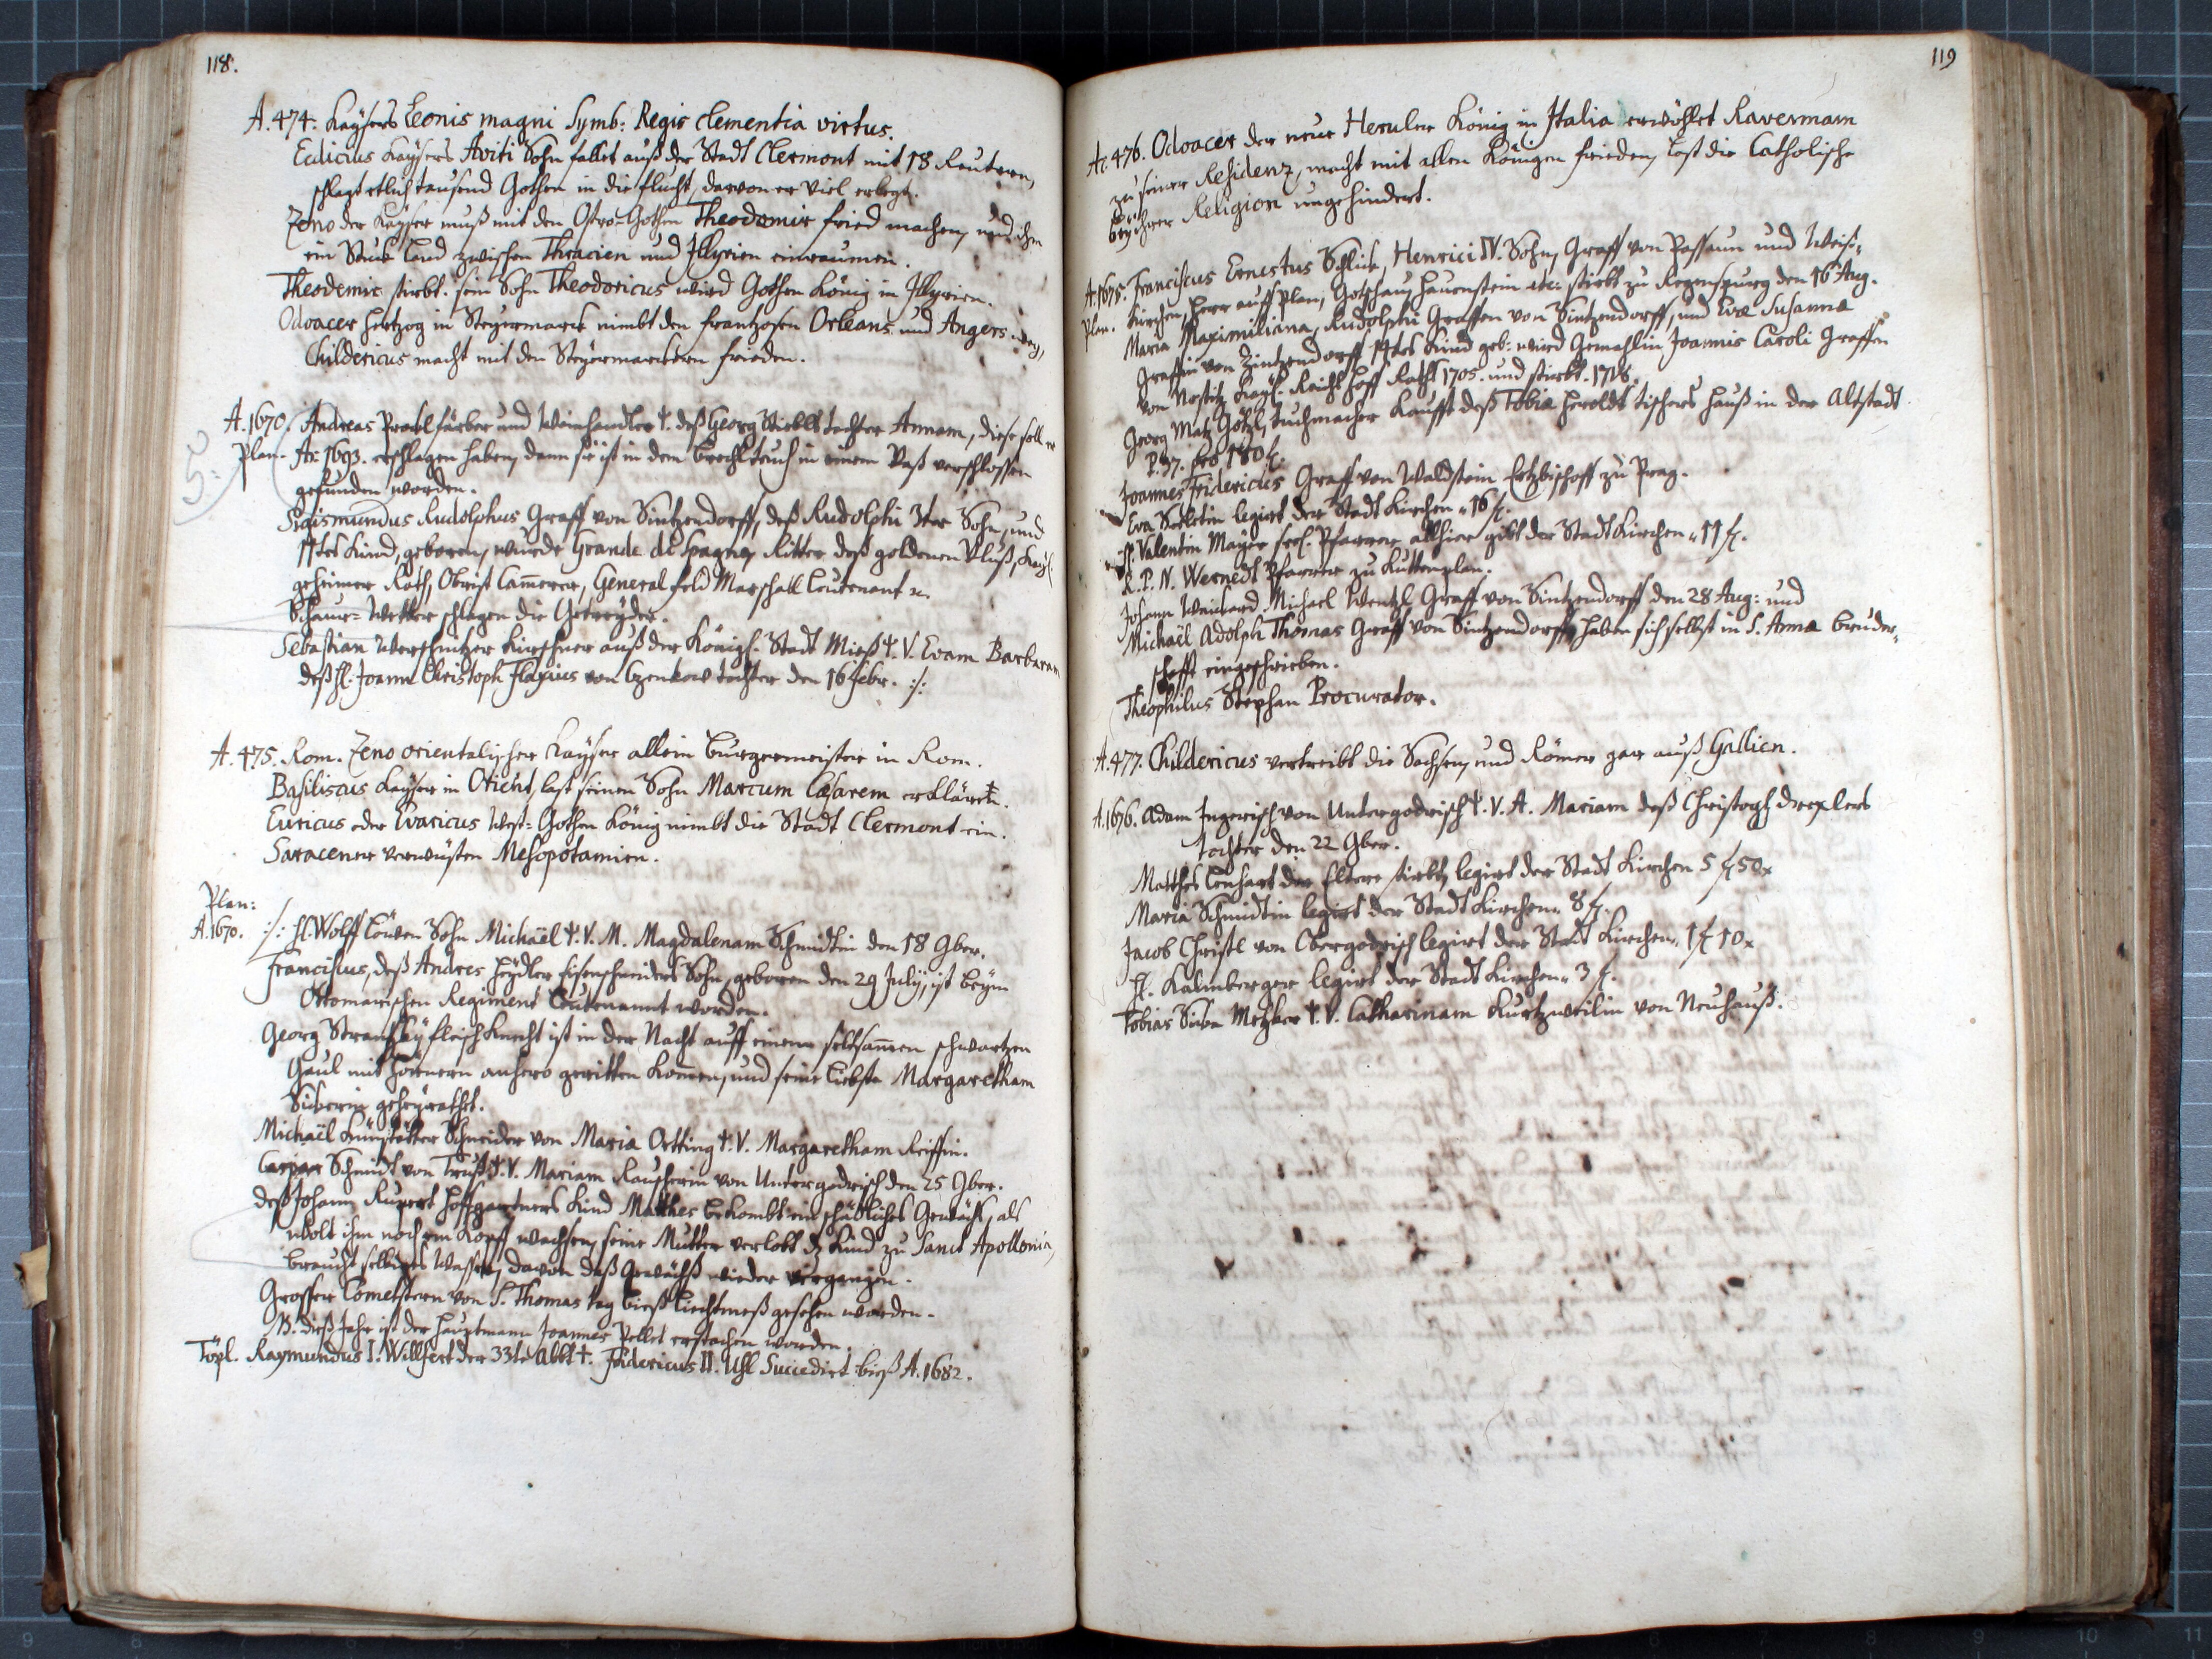 118.
A. 474. Kaÿsers Leonis magni Symb: Regis clementia virtus.
Ecdicius Kaÿsers Aviti Sohn fallet auß der Stadt Clermont mit 18 Reutern,
schlagt etlich tausend Gothen in die flucht, darvon er viel erlegt.
Zeno der Kaÿser muß mit den Ostro-Gothen Theodomir fried machen, und ihm
ein Stuck Land zwischen Thracien und Illyrien einraumen.
Theodemir stirbt. sein Sohn Theodoricus wird Gothen König in Illyrien.
Odoacer Hertzog in Steyermarck nimbt den frantzosen Orleans und Angers weg,
Childericus macht mit den Steyermarckern frieden.
A. 1670. Andreas färber und Weinhandler †. deß Georg tochter Annam, diese soll er
Plan. Aõ 1693. erschlagen haben, dann sie ist in dem teuch in einem Vaß verschlossen
gefunden worden.
Sigismundus Rudolphus Graff von Sintzendorff, deß Rudolphi 3ter Sohn, und
11tes Kind, geboren, wurde Grande di Spagna, Ritter deß goldenen Vluß, Kaÿ:
geheimer Rath, Obrist Cammerer, General feld Marschall Leutenant
Schaur-Wetter schlagen die Getreyder.
Sebastian Kirschner auß der Königl. Stadt Mieß †. V. Evam Barbaram
deß H. Joann Christoph Flaxius von Czenkow tochter den 16 febr. :/:
A. 475. Rom. Zeno orientalischer Kaÿser allein Burgermeister in Rom.
Basiliscus Kaÿser in Orient, last seinen Sohn Marcum Cæsarem erklären.
Euricus oder Evaricus West-Gothen König nimbt die Stadt Clermont ein.
Saracener verwüsten Mesopotamien.
Plan:
A. 1670. :/: H. Wolff Löwen Sohn Michaël †. V. M. Magdalenam Schmidtin den 18 9ber.
Franciscus, deß Andres Heÿdler Sohn, geboren den 29 Julÿ, ist beÿm
Ottomanischen Regiment Leutenannt worden.
Georg fleisch Knecht ist in der Nacht auff einem seltsamen schwartzen
Gaul mit Hörnern anhero geritten kommen, und seine liebste Margaretham
geheÿrathet.
Michaël Schneider von Maria Oetting †. V. Margaretham Reiffin.
Caspar Schmidt von †. V. Mariam Rauscherin von Untergodrisch den 25 9ber.
Deß Johann Rupert Hoffgartners Kind Matthes bekombt ein schädliches Gewächs, als
wolt ihm noch ein Kopff wachsen, seine Mutter verlobt dz Kind zu Sanct Apollonia,
braucht selbiges Wasser, davon daß Gewächs wieder vergangen.
Grosser Cometstern von S. Thomas tag bieß Liechtmeß gesehen worden.
NB. dieß Jahr ist der Hauptmann Joannes Pellet erstochen worden.
Töpl. Raymundus I. Wilfert der 33te Abbt †. Fridericus II. Uhl Succedirt bieß A. 1682.
119
Aõ. 476. Odoacer der neue Heruler König in Italia erwöhlet Ravennam
zu seiner Residenz, macht mit allen Königen frieden, last die Catholische
beÿ ihrer Religion ungehindert.
A. 1675. Franciscus Ernestus Schlick, Henrici IV. Sohn, Graff von Passaun und Weiß-
Plan. Kirchen, Herr auff Plan, Gotschau, Hauenstein etc. stirbt zu Regenspurg den 16 Aug.
Maria Maximiliana, Rudolphi Graffen von Sintzendorff, und Evæ Susannæ
Graffin von Zintzendorff 14tes Kind geb: wird Gemahlin Joannis Caroli Graffen
von Nostitz Kaÿl. Reichs Hoff Raths 1705. und stirbt. 1718.
Georg Matz Götzl, tuchmacher kaufft deß Tobiæ Heroldt tischers Hauß in der Altstadt
P. 37. pro 180 f.
Joannes Fridericus Graff von Waldstein Ertzbischoff zu Prag.
Eva legirt der Stadt Kirchen 16 f.
H. Valentin Mayer seel. Pfarrer allhier gibt der Stadt Kirchen 11 f.
R. P. N. Wernedt Pfarrer zu Kuttenplan.
Johann Weickard Michael Wentzl Graff von Sintzendorff den 28 Aug: und
Michaël Adolph Thomas Graff von Sintzendorff haben sich selbst in S. Annæ bruder-
schafft eingeschrieben.
Theophilus Stephan Procurator.
A. 477. Childericus vertreibt die Sachsen, und Römer gar auß Gallien.
A. 1676. Adam Ingerisch von Untergodrisch †. V. A. Mariam deß Christoph drexlers
tochter den 22 9ber.
Matthes Lenhart der Eltere stirbt, legirt der Stadt Kirchen 5 f 50 x
Maria Schmidtin legirt der Stadt Kirchen 8 f.
Jacob Christl von Obergodrisch legirt der Stadt Kirchen 1 f 10 x
H. Kalmberger legirt der Stadt Kirchen 3 f.
Tobias Metzker †. V. Catharinam Kurtzweilin von Neuhauß.